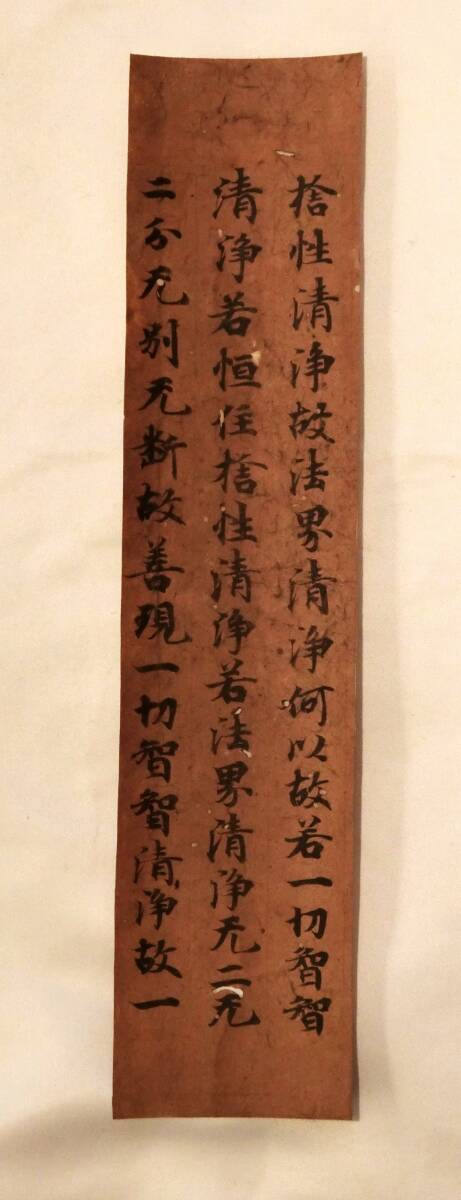 捨性清淨故法界清淨何以故若一切智智
清淨若恒住捨性清淨若法界清淨无二无
二分无別无斷故善現一切智智清淨故一